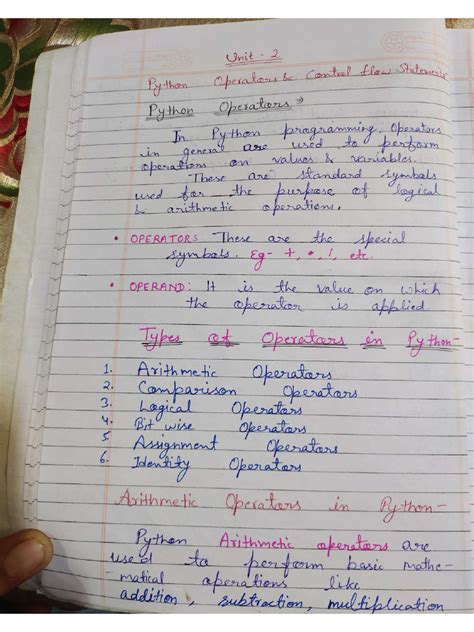 Unit - 2
Python Operators & Control flow Statements
Python Operators →
In Python programming, Operators
in general are used to perform
operations on values & variables.
These are standard symbols
used for the purpose of logical
& arithmetic operations.
• OPERATORS These are the special
symbols. Eg- +, *, /, etc.
• OPERAND: It is the value on which
the operator is applied
Types of Operators in Python-
1. Arithmetic Operators
2. Comparison Operators
3. Logical Operators
4. Bit wise Operators
5 Assignment Operators
6. Identity Operators
Arithmetic Operators in Python-
Python Arithmetic operators are
used to perform basic mathe-
matical operations like
addition, subtraction, multiplication